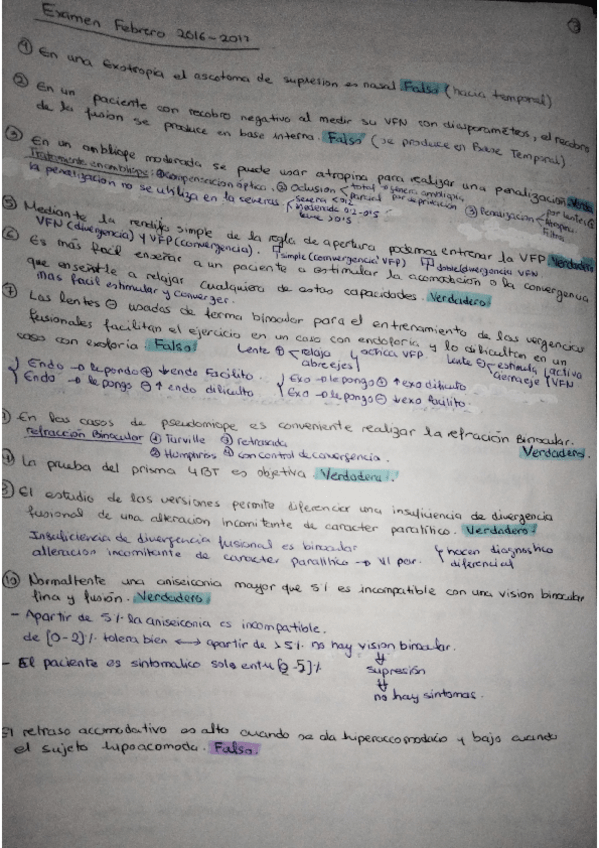 Examen Febrero 2016-2017
① En una exotropia el escotoma de supresion es nasal. Falso (hacia temporal)
② En un paciente con recobro negativo al medir su VFN con diasporametros, el recobro
de la fusion se produce en base interna. Falso (se produce en Base Temporal)
③ En un ambliope moderada se puede usar atropina para realizar una penalización.
Tratamiento en ambliope: ① compensacion óptica. ② Oclusion total parcial por deprivación ③ Penalización
la penalización no se utiliza en la severas severa moderada 0.2-0.5 leve >0.5 Filtro
⑤ Mediante la rendija simple de la regla de apertura podemos entrenar la VFP Verdadero
VFN (divergencia) y VFP (convergencia). simple (convergencia VFP) doble divergencia VFN.
⑥ Es más facil enseñar a un paciente a estimular la acomodación o la convergencia
que enseñarle a relajar cualquiera de estas capacidades. Verdadero
mas facil estimular y converger.
⑦ Las lentes ⊖ usadas de forma binocular para el entrenamiento de las vergencias
fusionales facilitan el ejercicio en un caso con endoforia y lo dificultan en un
caso con exoforia. Falso. Lente ⊕ relaja abre ejes activa VFP Lente ⊖ estimula cierra eje activa VFN
Endo → le pondo ⊕ ↓ endo Facilito. Exo → le pongo ⊕ ↑ exo dificulto
Endo → le pongo ⊖ ↑ endo dificulto Exo → le pongo ⊖ ↓ exo facilito.
En los casos de pseudomiope es conveniente realizar la refración Binocular.
Refracción Binocular ① Turville ③ retrasada Verdadero.
② Humphriss ④ con control de convergencia.
La prueba del prisma 4BT es objetiva. Verdadera.
El estudio de las versiones permite diferenciar una insuficiencia de divergencia
fusional de una alteracion incomitante de caracter paralitico. Verdadero.
Insuficiencia de divergencia fusional es binocular
alteracion incomitante de caracter paralitico → VI par. hacen diagnostico diferencial
⑩ Normaltente una aniseiconia mayor que 5% es incompatible con una vision binocular
fina y fusión. Verdadero.
- Apartir de 5% la aniseiconia es incompatible.
de [0-2]% tolera bien ↔ apartir de >5% no hay vision binocular.
- El paciente es sintomatico solo entre [2-5]% supresión
no hay sintomas.
El retraso accomodativo es alto cuando se da hiperaccomodacio y bajo cuando
el sujeto hipoacomoda. Falso.